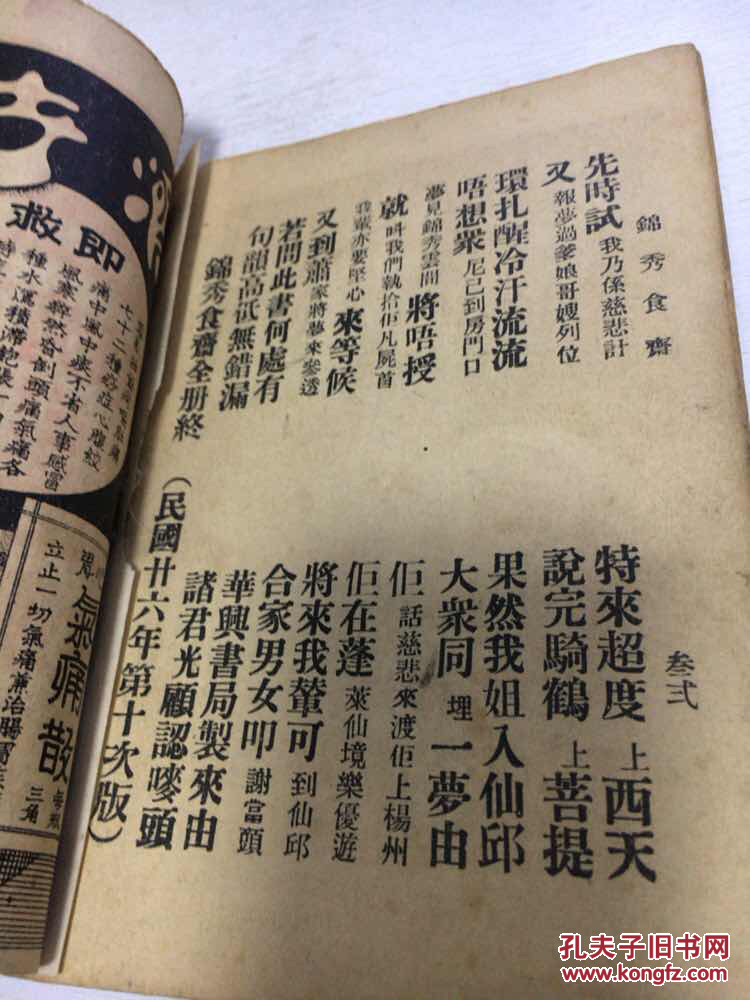 錦秀食齋
叁弍
先時試我乃係慈悲計
特來超度上西天
又報夢過爹娘哥嫂列位
說完騎鶴上菩提
環扎醒冷汗流流
果然我姐入仙邱
唔想衆尼已到房門口
大衆同埋一夢由
夢見錦秀雲間將唔授
佢話慈悲來渡佢上楊州
就呌我們執拾佢凡屍首
佢在蓬萊仙境樂優遊
我輩亦要堅心來等候
將來我輦可到仙邱
又到蕭家將夢來參透
合家男女叩謝當頭
若問此書何處有
華興書局製來由
句韻高低無錯漏
諸君光顧認嘜頭
錦秀食齋全册終
(民國廿六年第十次版)
即救
七十二種痧症心腹絞
痛中風中痰不省人事感冒
風寒猝然昏倒頭痛氣痛各
種水瀉積滯飽脹
氣痛散
每瓶三角
立止一切氣痛兼治腸胃
孔夫子旧书网
www.kongfz.com